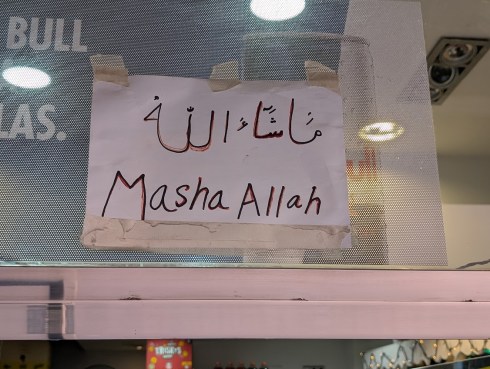 BULL
LAS.
ماشاء الله
Masha Allah